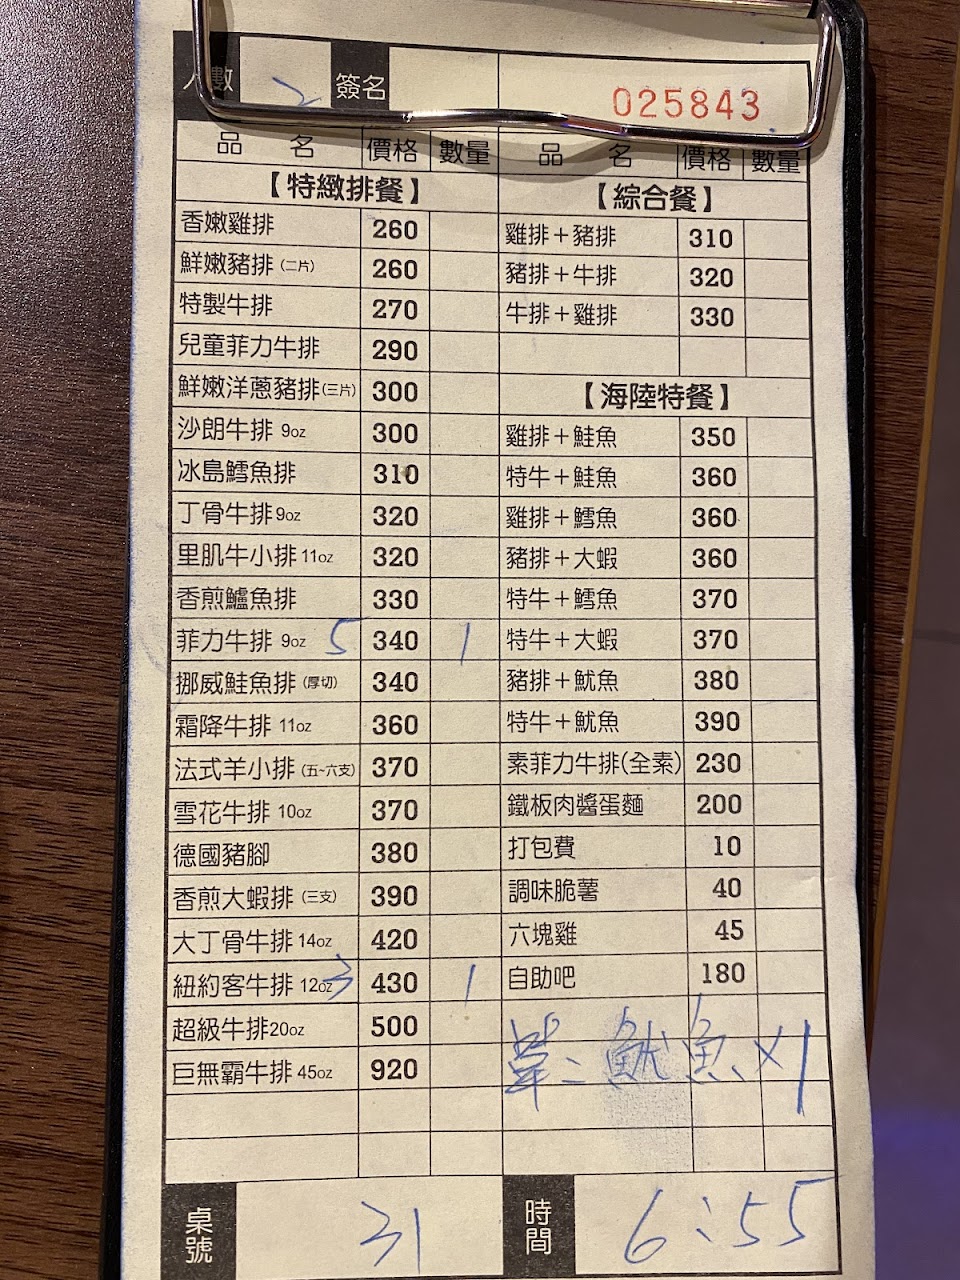 人數 2 簽名 025843
品名 價格 數量 品名 價格 數量
【特緻排餐】
香嫩雞排 260
鮮嫩豬排(二片) 260
特製牛排 270
兒童菲力牛排 290
鮮嫩洋蔥豬排(三片) 300
沙朗牛排 9oz 300
冰島鱈魚排 310
丁骨牛排 9oz 320
里肌牛小排 11oz 320
香煎鱸魚排 330
菲力牛排 9oz 5 340 1
挪威鮭魚排(厚切) 340
霜降牛排 11oz 360
法式羊小排(五~六支) 370
雪花牛排 10oz 370
德國豬腳 380
香煎大蝦排(三支) 390
大丁骨牛排 14oz 420
紐約客牛排 12oz 3 430 1
超級牛排20oz 500
巨無霸牛排 45oz 920
【綜合餐】
雞排＋豬排 310
豬排＋牛排 320
牛排＋雞排 330
【海陸特餐】
雞排＋鮭魚 350
特牛＋鮭魚 360
雞排＋鱈魚 360
豬排＋大蝦 360
特牛＋鱈魚 370
特牛＋大蝦 370
豬排＋魷魚 380
特牛＋魷魚 390
素菲力牛排(全素) 230
鐵板肉醬蛋麵 200
打包費 10
調味脆薯 40
六塊雞 45
自助吧 180
單:魷魚x1
桌號 31 時間 6:55